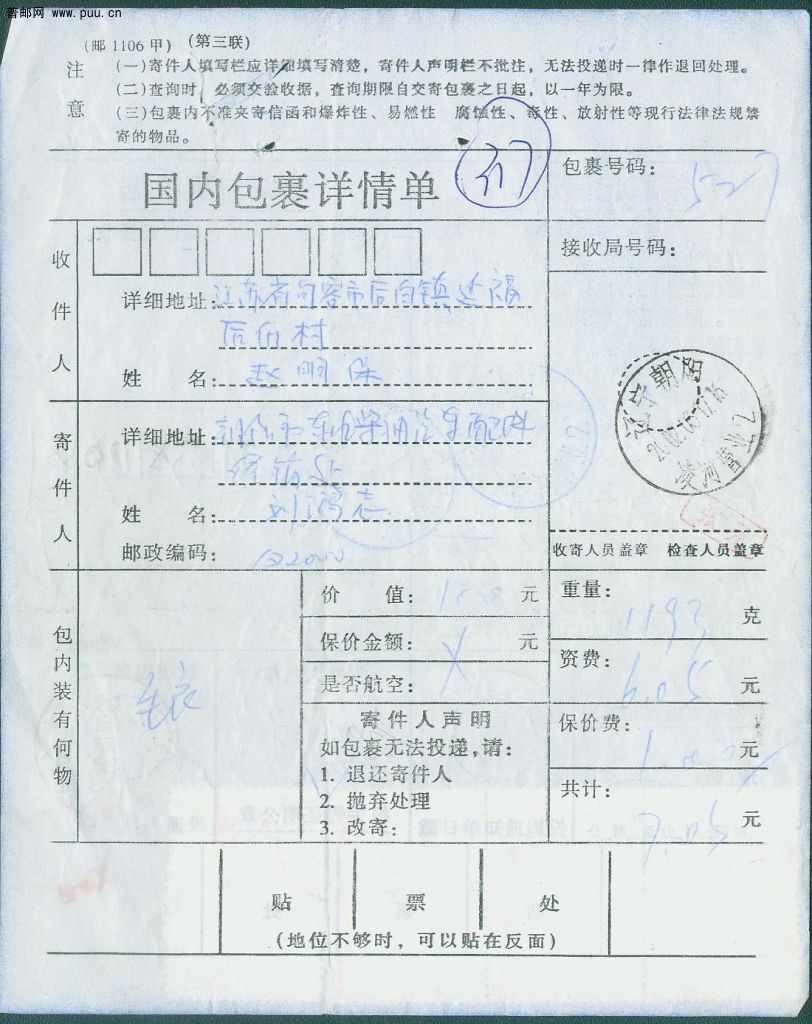 普邮网 www.puu.cn
(邮 1106 甲) (第三联)
注意
(一)寄件人填写栏应详细填写清楚，寄件人声明栏不批注，无法投递时一律作退回处理。
(二)查询时，必须交验收据，查询期限自交寄包裹之日起，以一年为限。
(三)包裹内不准夹寄信函和爆炸性、易燃性 腐蚀性、毒性、放射性等现行法律法规禁
寄的物品。
国内包裹详情单
317
包裹号码：527
接收局号码：
收件人
详细地址：江苏省句容市后白镇延福
后白村
姓 名：赵明保
寄件人
详细地址：朝阳市东风柴油汽车配件
经销处
姓 名：刘鸿志
邮政编码：122000
辽宁朝阳
凌河营业
收寄人员盖章 检查人员盖章
包内装有何物
毛衣
价 值：100 元
保价金额： 元
是否航空：
寄件人声明
如包裹无法投递,请：
1. 退还寄件人
2. 抛弃处理
3. 改寄：
重量：1193 克
资费：6.05 元
保价费：1.00 元
共计：7.05 元
贴 票 处
(地位不够时，可以贴在反面)